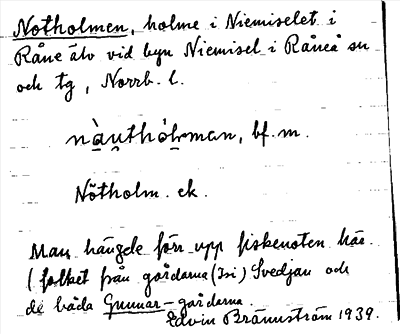 Notholmen, holme i Niemiselet i
Råne älv vid byn Niemisel i Råneå sn
och tg, Norrb. l.
nàu̯thòl̥man, bf. m.
Nötholm. ek.
Man hängde förr upp fiskenoten här.
(folket från gårdarna (Isi) Svedjan och
de båda Gunnar-gårdarna.
Edvin Brännström 1939.